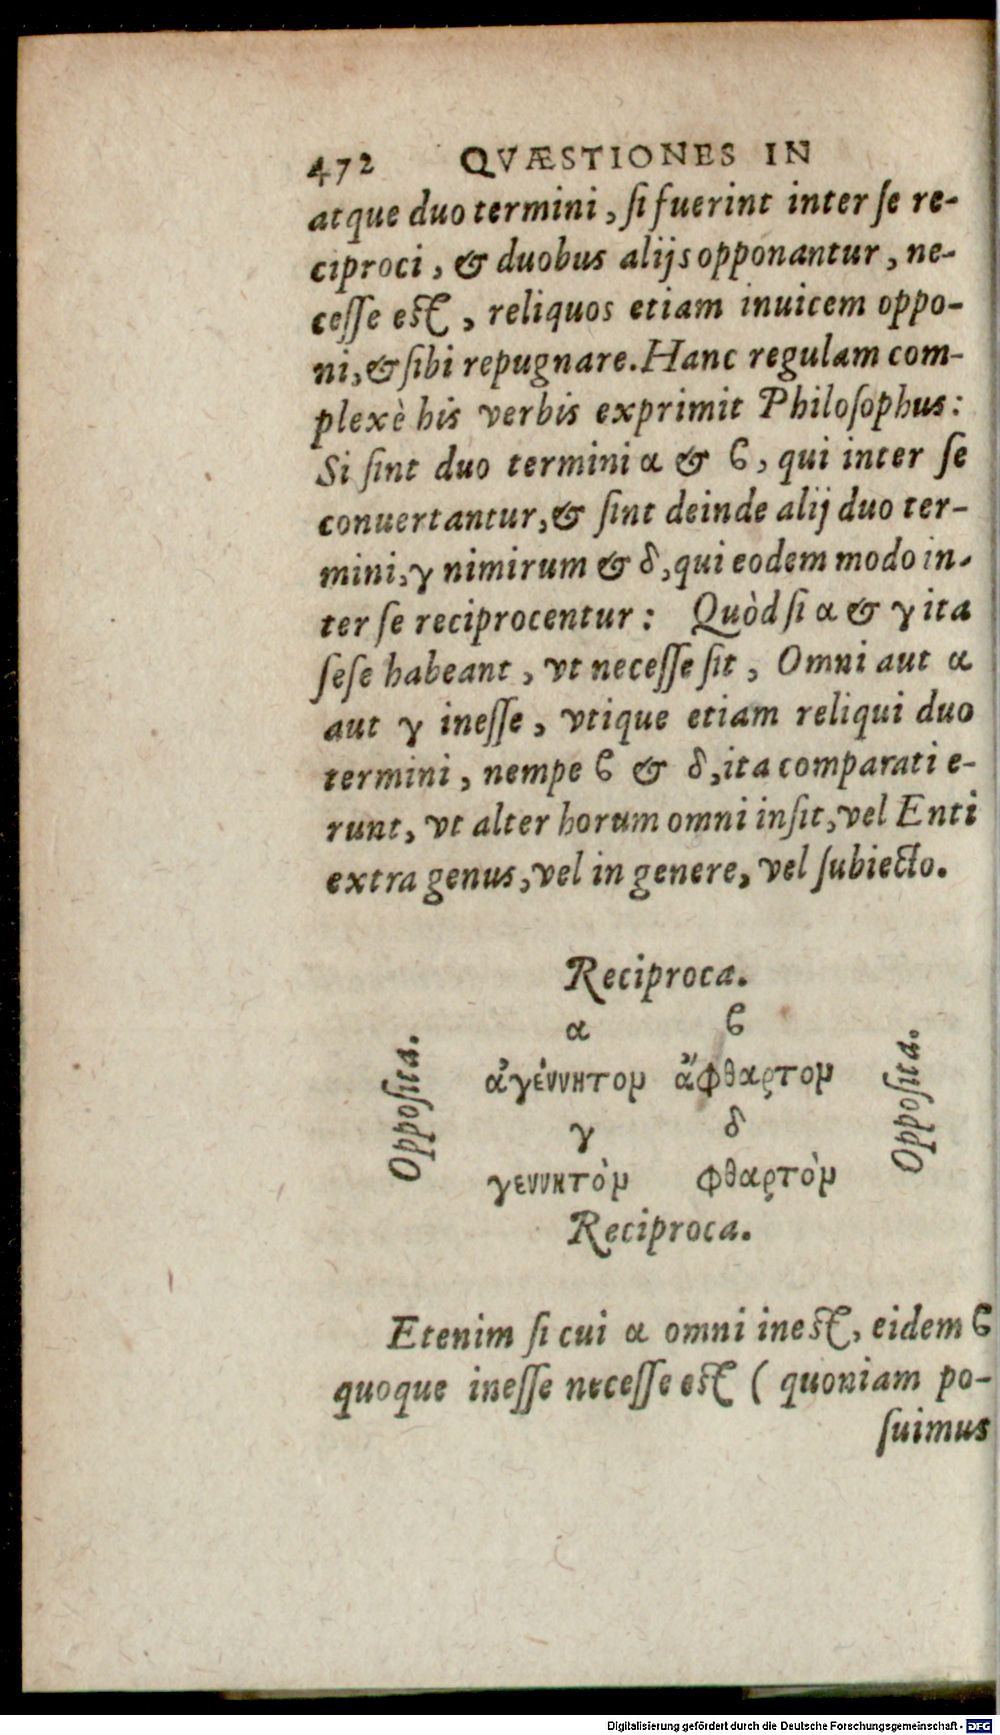 472 QVÆSTIONES IN
atque duo termini, ſi fuerint inter ſe re-
ciproci, & duobus alijs opponantur, ne-
ceſſe eſt, reliquos etiam inuicem oppo-
ni, & ſibi repugnare. Hanc regulam com-
plexè his verbis exprimit Philoſophus:
Si ſint duo termini α & ϐ, qui inter ſe
conuertantur, & ſint deinde alij duo ter-
mini, γ nimirum & δ, qui eodem modo in-
ter ſe reciprocentur: Quòd ſi α & γ ita
ſeſe habeant, vt neceſſe ſit, Omni aut α
aut γ ineſſe, vtique etiam reliqui duo
termini, nempe ϐ & δ, ita comparati e-
runt, vt alter horum omni inſit, vel Enti
extra genus, vel in genere, vel ſubiecto.
Reciproca.
α ϐ
Oppoſita. ἀγέννητον ἄφθαρτον Oppoſita.
γ δ
γεννητὸν φθαρτὸν
Reciproca.
Etenim ſi cui α omni ineſt, eidem ϐ
quoque ineſſe neceſſe eſt ( quoniam po-
ſuimus
Digitalisierung gefördert durch die Deutsche Forschungsgemeinschaft - DFG